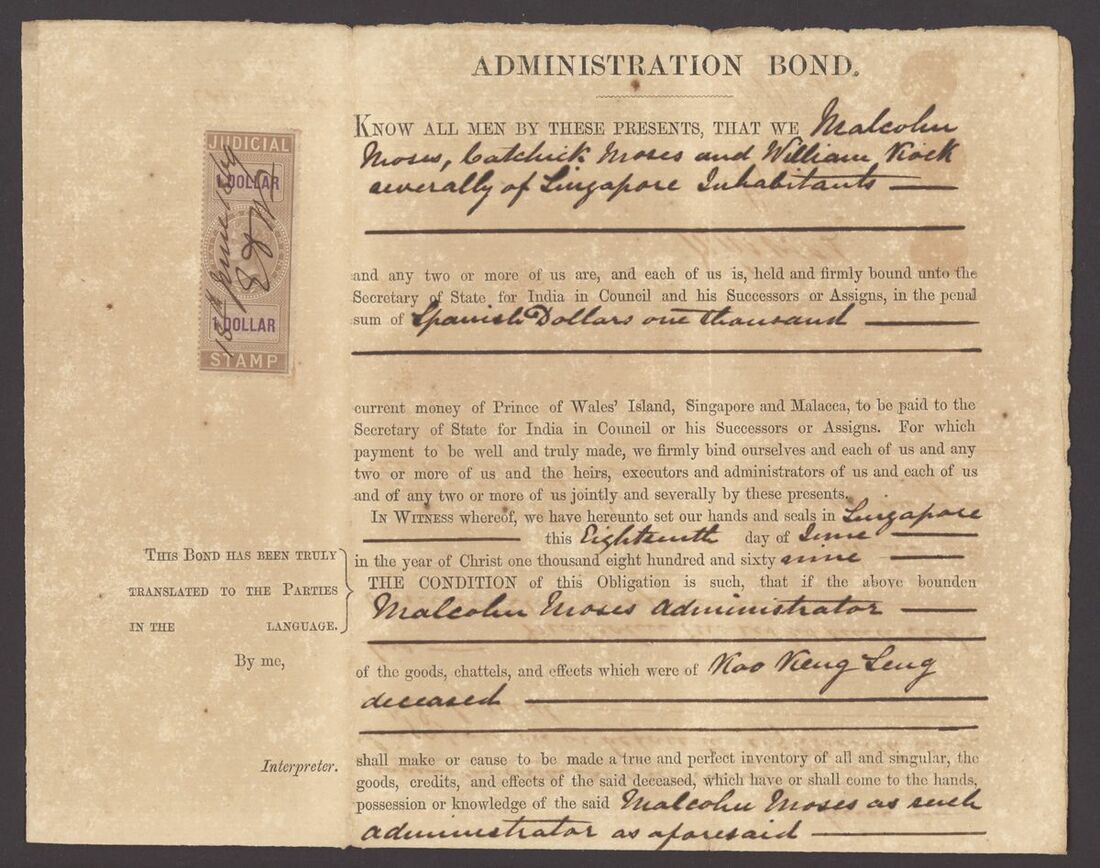 ADMINISTRATION BOND.
KNOW ALL MEN BY THESE PRESENTS, THAT WE Malcolm
Moses, Catchick Moses and William Kock
severally of Singapore Inhabitants
and any two or more of us are, and each of us is, held and firmly bound unto the
Secretary of State for India in Council and his Successors or Assigns, in the penal
sum of Spanish Dollars one thousand
current money of Prince of Wales' Island, Singapore and Malacca, to be paid to the
Secretary of State for India in Council or his Successors or Assigns. For which
payment to be well and truly made, we firmly bind ourselves and each of us and any
two or more of us and the heirs, executors and administrators of us and each of us
and of any two or more of us jointly and severally by these presents.
IN WITNESS whereof, we have hereunto set our hands and seals in Singapore
this Eighteenth day of June
in the year of Christ one thousand eight hundred and sixty nine
THE CONDITION of this Obligation is such, that if the above bounden
Malcolm Moses administrator
of the goods, chattels, and effects which were of Koo Keng Seng
deceased
shall make or cause to be made a true and perfect inventory of all and singular, the
goods, credits, and effects of the said deceased, which have or shall come to the hands,
possession or knowledge of the said Malcolm Moses as such
administrator as aforesaid
JUDICIAL
1 DOLLAR
1 DOLLAR
STAMP
18th June 1869
THIS BOND HAS BEEN TRULY
TRANSLATED TO THE PARTIES
IN THE LANGUAGE.
By me,
Interpreter.